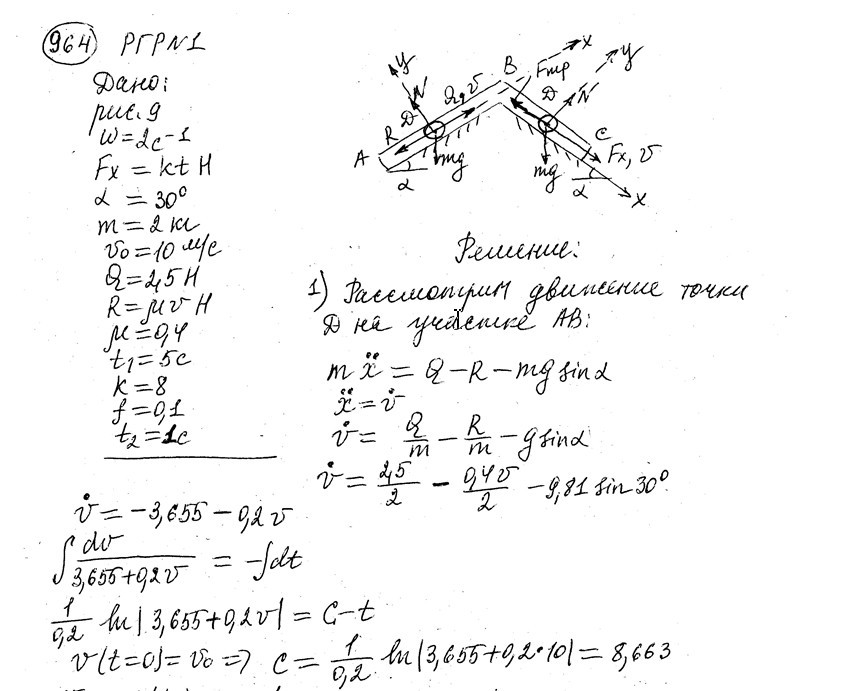 964 РГР№1
Дано:
рис. 9
ω = 2c⁻¹
Fx = kt Н
α = 30°
m = 2 кг
v₀ = 10 м/с
Q = 2,5 Н
R = μv Н
μ = 0,4
t₁ = 5с
k = 8
f = 0,1
t₂ = 1с
y
N
D
R
A
α
mg
Q, v
B
x
Fтр
D
y
N
C
Fx, v
mg
α
x
Решение:
1) Рассмотрим движение точки
D на участке AB:
mẍ = Q − R − mg sinα
ẍ = v̇
v̇ = Q/m − R/m − g sinα
v̇ = 2,5/2 − 0,4v/2 − 9,81 sin 30°
v̇ = −3,655 − 0,2v
∫ dv/(3,655+0,2v) = −∫dt
1/0,2 ln|3,655+0,2v| = C − t
v(t=0) = v₀ => C = 1/0,2 ln|3,655+0,2·10| = 8,663